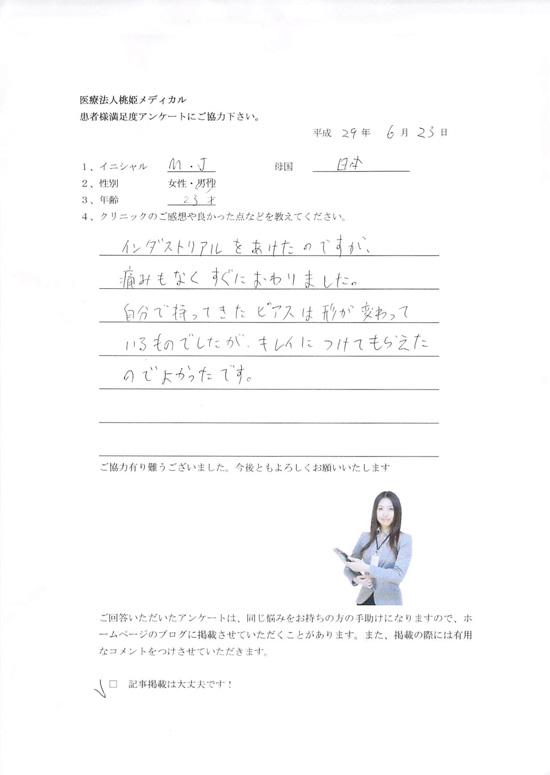 医療法人桃姫メディカル
患者様満足度アンケートにご協力下さい。
平成 29 年 6 月 23 日
1、イニシャル M・J 母国 日本
2、性別 女性・男性
3、年齢 23才
4、クリニックのご感想や良かった点などを教えてください。
インダストリアルをあけたのですが、
痛みもなくすぐにおわりました。
自分で持ってきたピアスは形が変わって
いるものでしたが、キレイにつけてもらえた
のでよかったです。
ご協力有り難うございました。今後ともよろしくお願いいたします
ご回答いただいたアンケートは、同じ悩みをお持ちの方の手助けになりますので、ホ
ームページのブログに掲載させていただくことがあります。また、掲載の際には有用
なコメントをつけさせていただきます。
□ 記事掲載は大丈夫です！